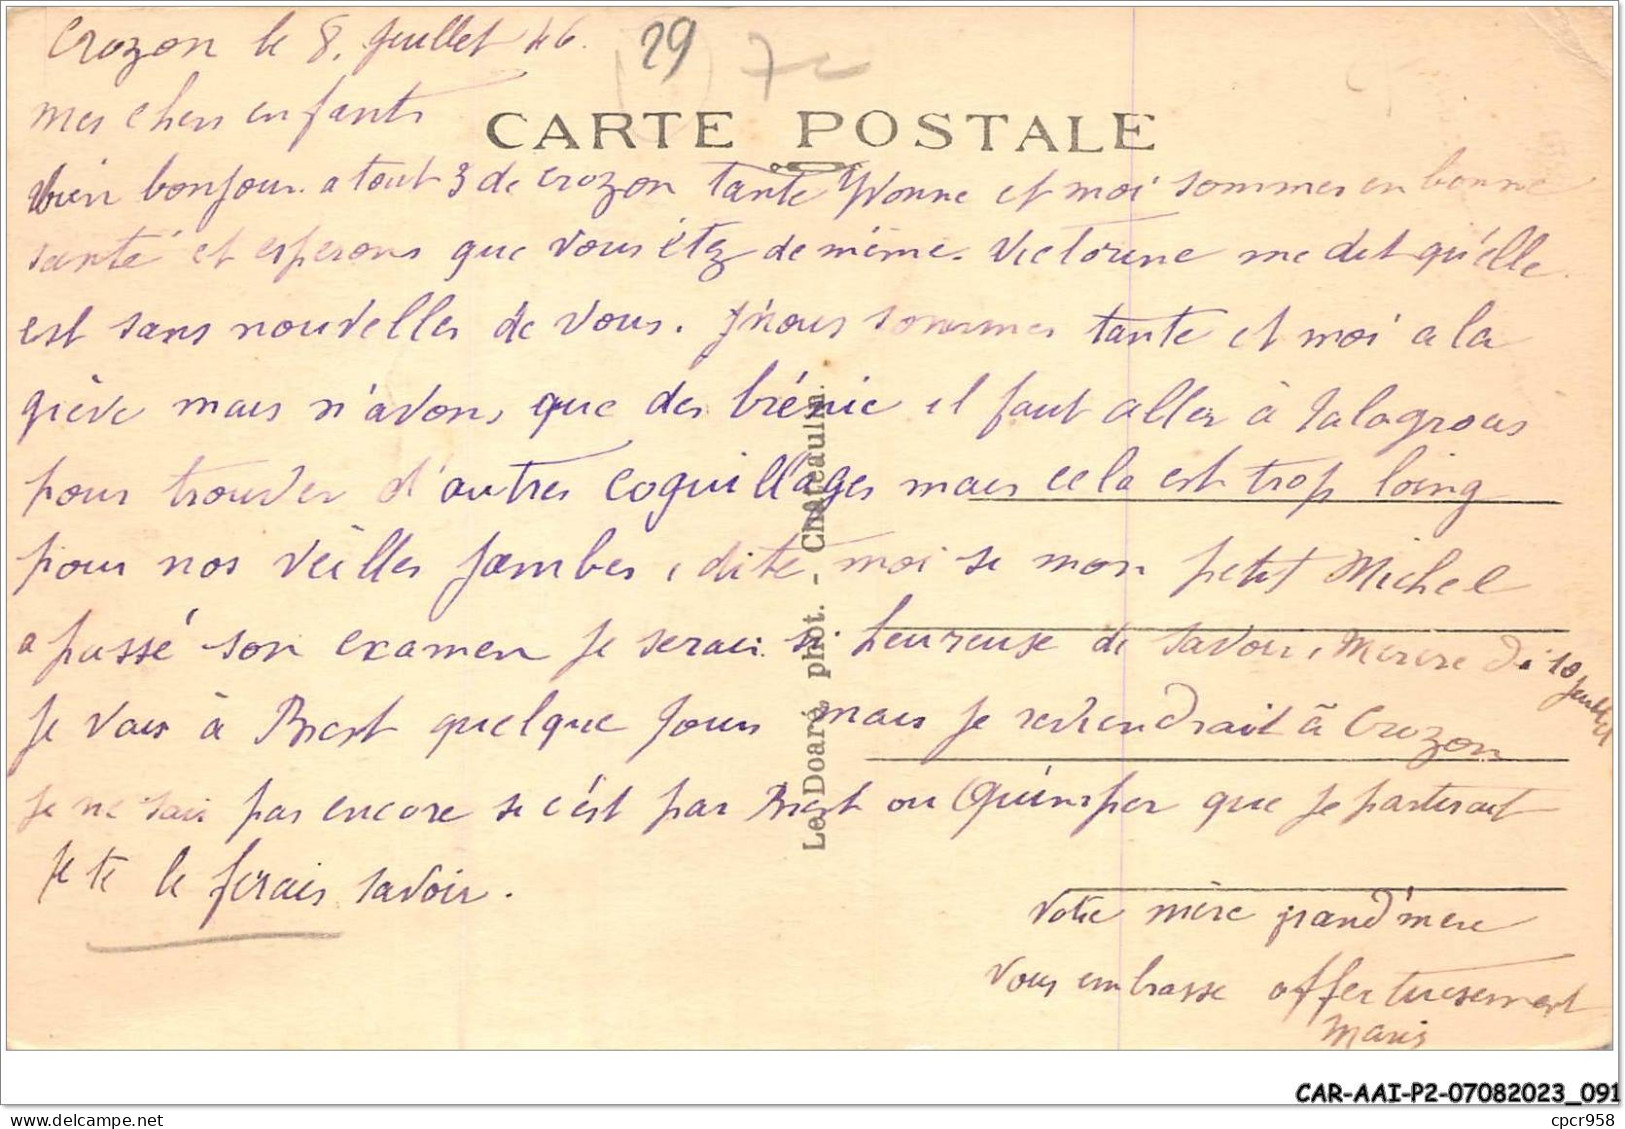 Crozon le 8. Juillet 46.
29
mes chers enfants
CARTE POSTALE
bien bonjour a tout 3 de crozon tante Yvonne et moi sommes en bonne
santé et esperons que vous étez de même. Victorine me dit qu'elle
est sans nouvelles de vous. nous sommes tante et moi a la
grève mais n'avons que des brénic il faut aller à
pour trouver d'autres coquillages mais cela est trop loing
pour nos vèilles jambes, dite moi se mon petit Michel
a passé son examen je serais si heureuse de savoir, Mercredi 10 juillet
je vais à Brest quelque jours mais je reviendrait à Crozon
je ne sais pas encore se c'ést par Brest ou Quimper que je partirait
je te le ferais savoir.
votre mère grand'mère
vous embrasse affectuesement
Le Doaré phot. - Châteaulin.
CAR-AAI-P2-07082023_091
cpcr958